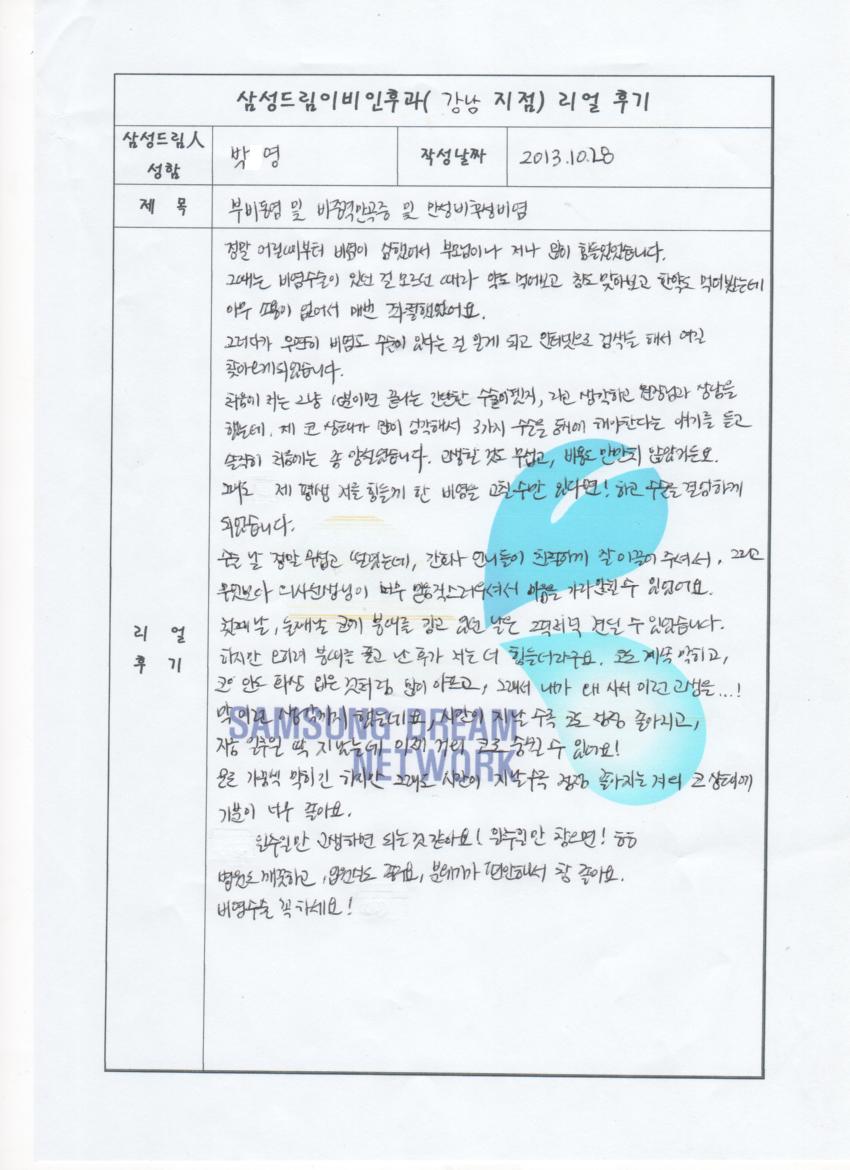 삼성드림이비인후과( 강남 지점) 리얼 후기
삼성드림人
성함
박 영
작성날짜
2013.10.28
제 목
부비동염 및 비중격만곡증 및 만성비후성비염
리 얼
후 기
정말 어릴때부터 비염이 심했어서 부모님이나 저나 많이 힘들었었습니다.
그때는 비염수술이 있던 걸 모르던 때라 약도 먹어보고 침도 맞아보고 한약도 먹어봤는데
아무 소용이 없어서 매번 좌절했었어요.
그러다가 우연히 비염도 수술이 있다는 걸 알게 되고 인터넷으로 검색을 해서 여길
찾아오게되었습니다.
처음에 저는 그냥 1번이면 끝나는 간단한 수술이겠지, 라고 생각하고 원장님과 상담을
했는데, 제 코 상태가 많이 심각해서 3가지 수술을 동시에 해야한다는 얘기를 듣고
솔직히 처음에는 좀 망설였습니다. 고생할 것도 무섭고, 비용도 만만치 않았거든요.
그래도 제 평생 저를 힘들게 한 비염을 고칠수만 있다면! 하고 수술을 결심하게
되었습니다.
수술 날 정말 무섭고 떨렸는데, 간호사 언니들이 친절하게 잘 이끌어 주셔서, 그리고
무엇보다 의사선생님이 너무 믿음직스러우셔서 마음을 가라앉힐 수 있었어요.
첫째날, 둘째날 코에 붕대를 감고 있던 날은 그럭저럭 견딜 수 있었습니다.
하지만 오히려 붕대를 풀고 난 후가 저는 더 힘들더라구요. 코도 계속 막히고,
코 안도 화상 입은 것처럼 많이 아프고, 그래서 내가 왜 사서 이런 고생을...!
막 이런 생각까지 했는데요, 시간이 지날 수록 코도 점점 좋아지고,
지금 일주일 딱 지났는데 이제 거의 코로 숨쉴 수 있어요!
물론 가끔씩 막히긴 하지만 그래도 시간이 지날수록 점점 좋아지는 저의 코 상태에
기분이 너무 좋아요.
일주일만 고생하면 되는 것 같아요! 일주일만 참으면! ㅎㅎ
병원도 깨끗하고, 입원실도 좋구요, 분위기가 편안해서 참 좋아요.
비염수술 꼭 하세요!
SAMSUNG DREAM
NETWORK